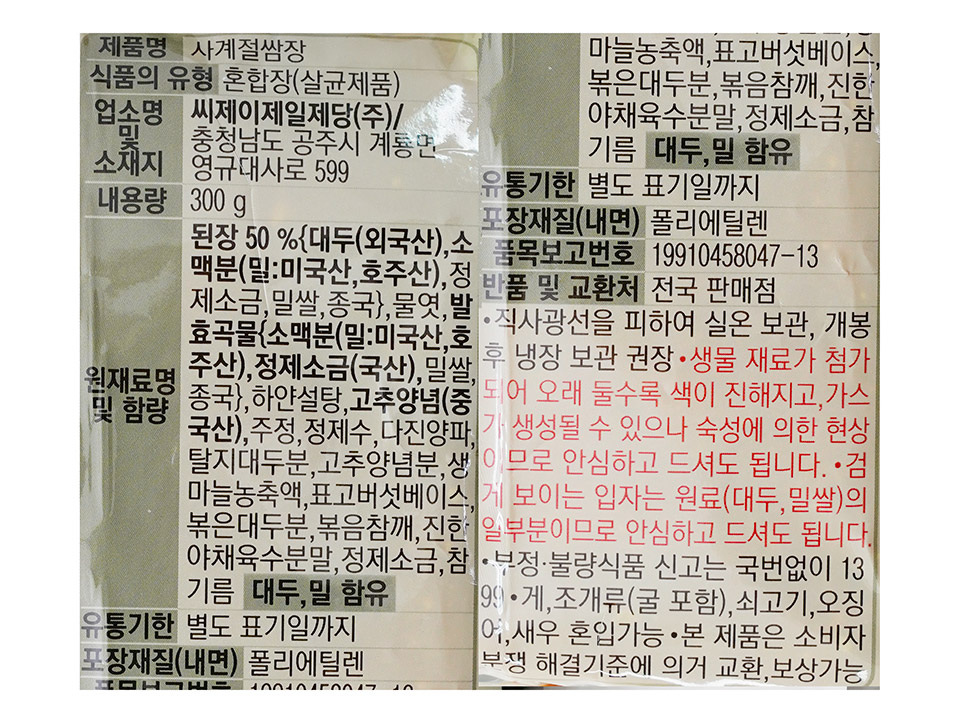 제품명 사계절쌈장
식품의 유형 혼합장(살균제품)
업소명 및 소재지 씨제이제일제당(주)/
충청남도 공주시 계룡면
영규대사로 599
내용량 300 g
원재료명 및 함량 된장 50 %{대두(외국산),소
맥분(밀:미국산,호주산),정
제소금,밀쌀,종국},물엿,발
효곡물{소맥분(밀:미국산,호
주산),정제소금(국산),밀쌀,
종국},하얀설탕,고추양념(중
국산),주정,정제수,다진양파,
탈지대두분,고추양념분,생
마늘농축액,표고버섯베이스,
볶은대두분,볶음참깨,진한
야채육수분말,정제소금,참
기름 대두,밀 함유
유통기한 별도 표기일까지
포장재질(내면) 폴리에틸렌
품목보고번호 19910458047-13
마늘농축액,표고버섯베이스,
볶은대두분,볶음참깨,진한
야채육수분말,정제소금,참
기름 대두,밀 함유
유통기한 별도 표기일까지
포장재질(내면) 폴리에틸렌
품목보고번호 19910458047-13
반품 및 교환처 전국 판매점
•직사광선을 피하여 실온 보관, 개봉
후 냉장 보관 권장•생물 재료가 첨가
되어 오래 둘수록 색이 진해지고,가스
가 생성될 수 있으나 숙성에 의한 현상
이므로 안심하고 드셔도 됩니다.•검
게 보이는 입자는 원료(대두,밀쌀)의
일부분이므로 안심하고 드셔도 됩니다.
•부정·불량식품 신고는 국번없이 13
99•게,조개류(굴 포함),쇠고기,오징
어,새우 혼입가능•본 제품은 소비자
분쟁 해결기준에 의거 교환,보상가능